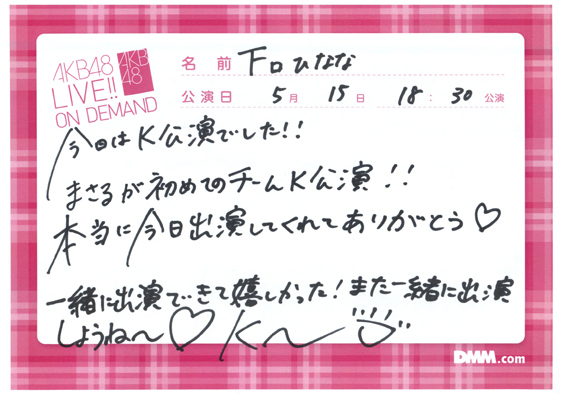 AKB48
LIVE!!
ON DEMAND
AKB
48
名前 下口ひなな
公演日 5月 15日 18:30公演
今日はK公演でした!!
まさるが初めてのチームK公演!!
本当に今日出演してくれてありがとう♡
一緒に出演できて嬉しかった!また一緒に出演
しようね〜♡ K〜
DMM.com